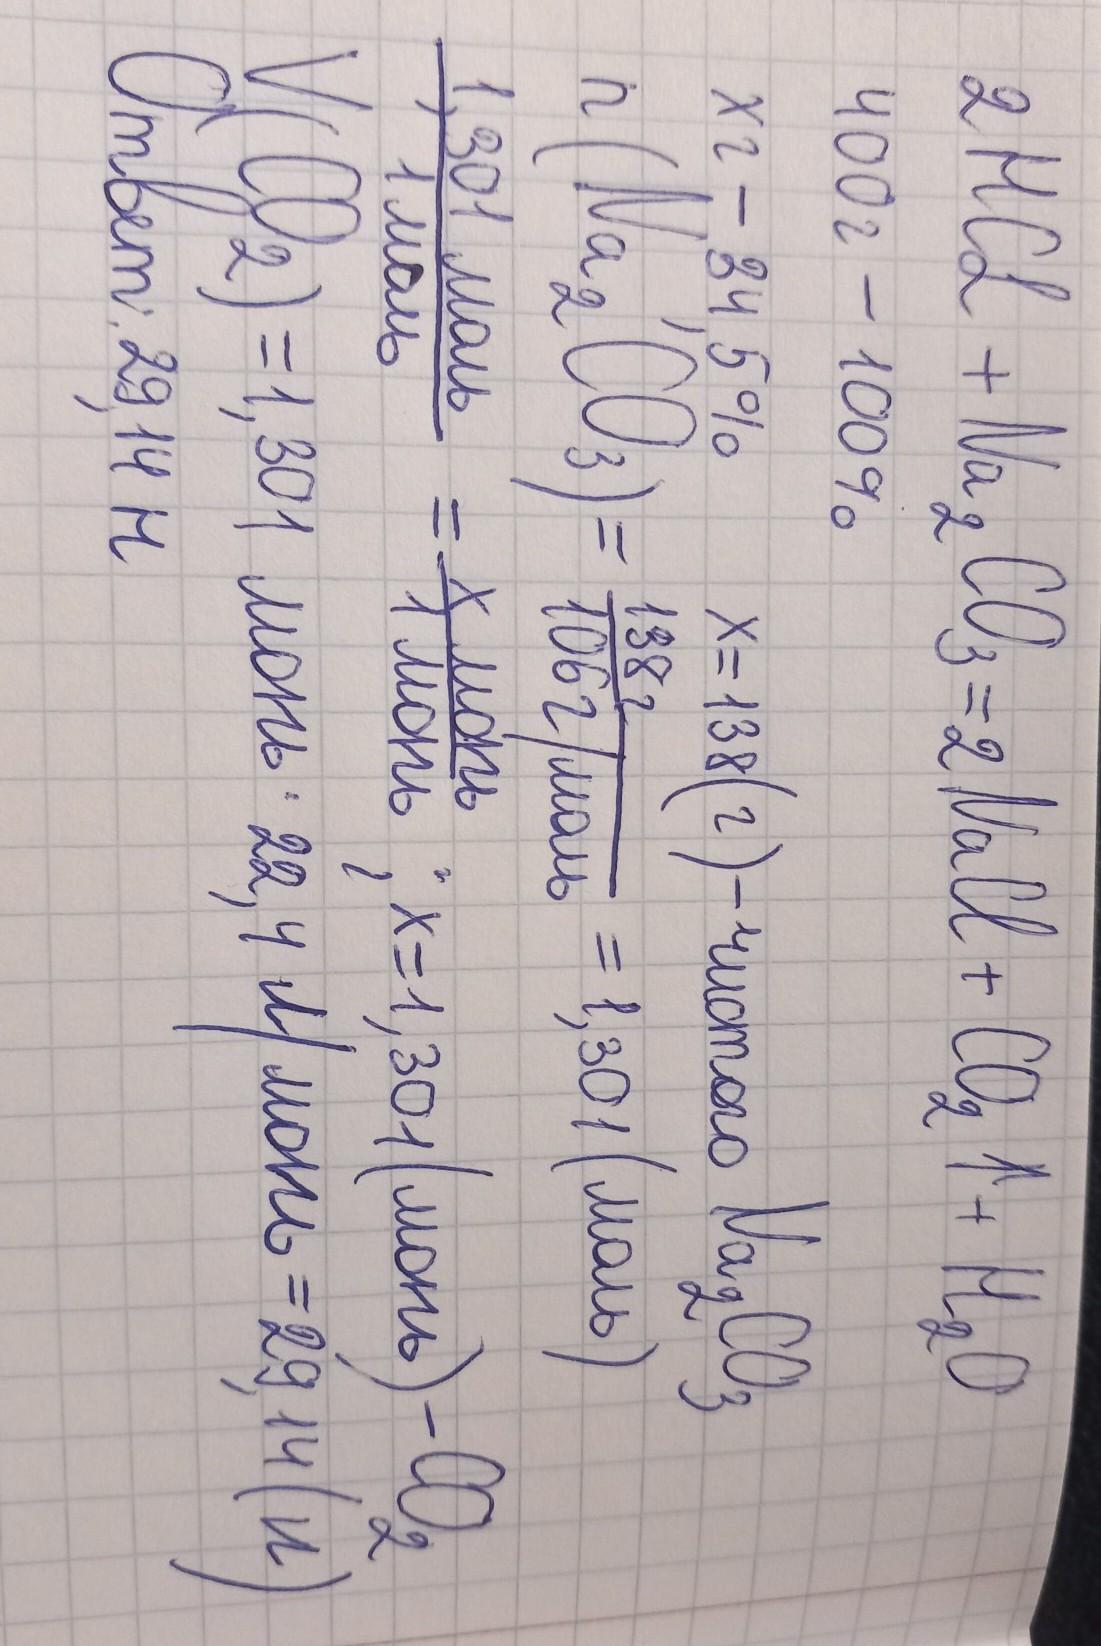 2HCl + Na2CO3 = 2NaCl + CO2↑ + H2O
400г – 100%
xг – 34,5% x = 138(г) – чистого Na2CO3
n(Na2CO3) = 138г / 106г/моль = 1,301(моль)
1,301 моль / 1 моль = x моль / 1 моль ; x = 1,301(моль) – CO2
V(CO2) = 1,301 моль · 22,4 л/моль = 29,14(л)
Ответ: 29,14 л